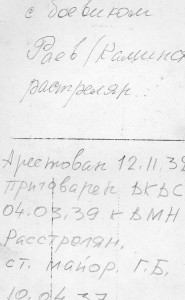 с боевиком
Раев/Каминск
растрелян
Арестован 12.11.38
приговарен ВКВС
04.03.39 к ВМН
Расстрелян.
ст. майор. Г.Б.
10.04.37